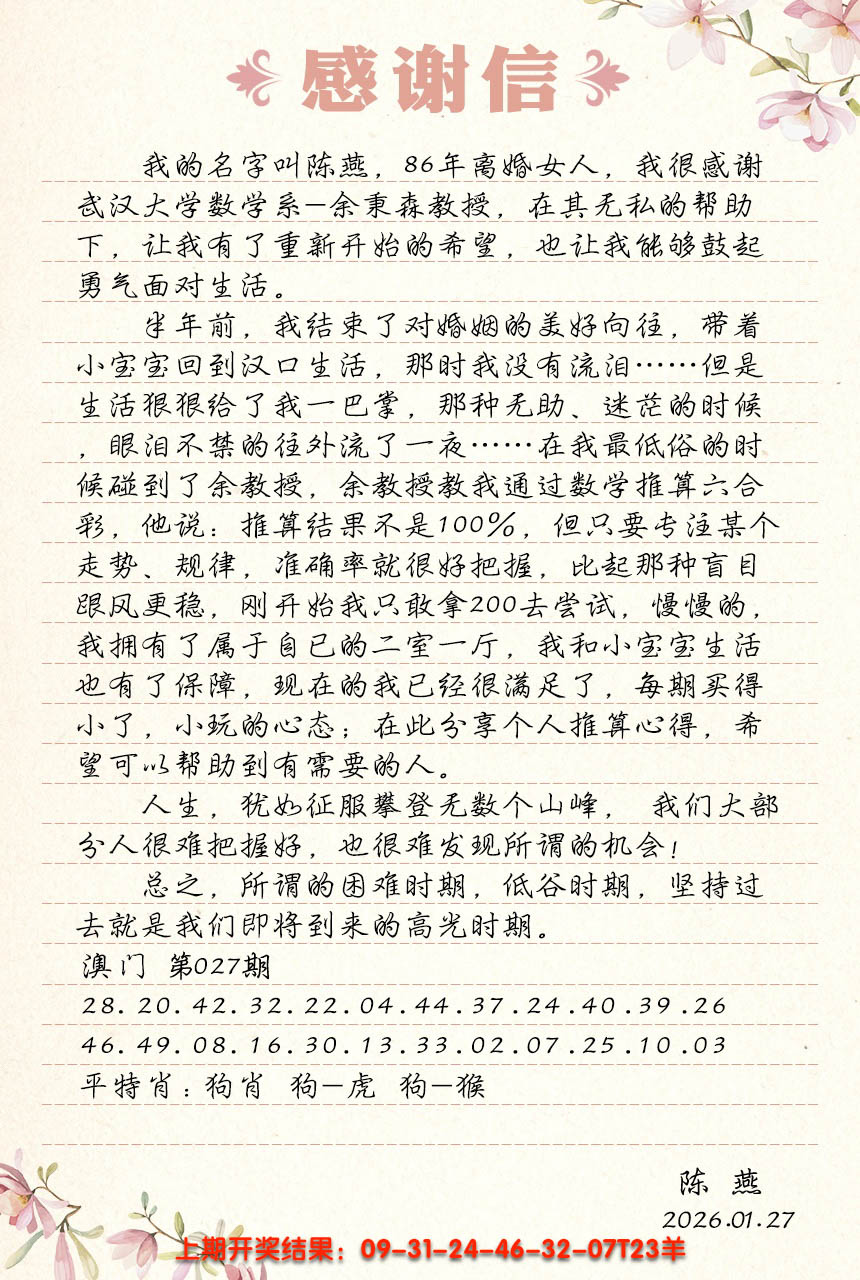 感谢信
我的名字叫陈燕，86年离婚女人，我很感谢
武汉大学数学系—余秉森教授，在其无私的帮助
下，让我有了重新开始的希望，也让我能够鼓起
勇气面对生活。
半年前，我结束了对婚姻的美好向往，带着
小宝宝回到汉口生活，那时我没有流泪……但是
生活狠狠给了我一巴掌，那种无助、迷茫的时候
，眼泪不禁的往外流了一夜……在我最低俗的时
候碰到了余教授，余教授教我通过数学推算六合
彩，他说：推算结果不是100%，但只要专注某个
走势、规律，准确率就很好把握，比起那种盲目
跟风更稳，刚开始我只敢拿200去尝试，慢慢的，
我拥有了属于自已的二室一厅，我和小宝宝生活
也有了保障，现在的我已经很满足了，每期买得
小了，小玩的心态；在此分享个人推算心得，希
望可以帮助到有需要的人。
人生，犹如征服攀登无数个山峰， 我们大部
分人很难把握好，也很难发现所谓的机会！
总之，所谓的困难时期，低谷时期，坚持过
去就是我们即将到来的高光时期。
澳门 第027期
28.20.42.32.22.04.44.37.24.40.39.26
46.49.08.16.30.13.33.02.07.25.10.03
平特肖：狗肖 狗—虎 狗—猴
陈 燕
2026.01.27
上期开奖结果：09-31-24-46-32-07T23羊